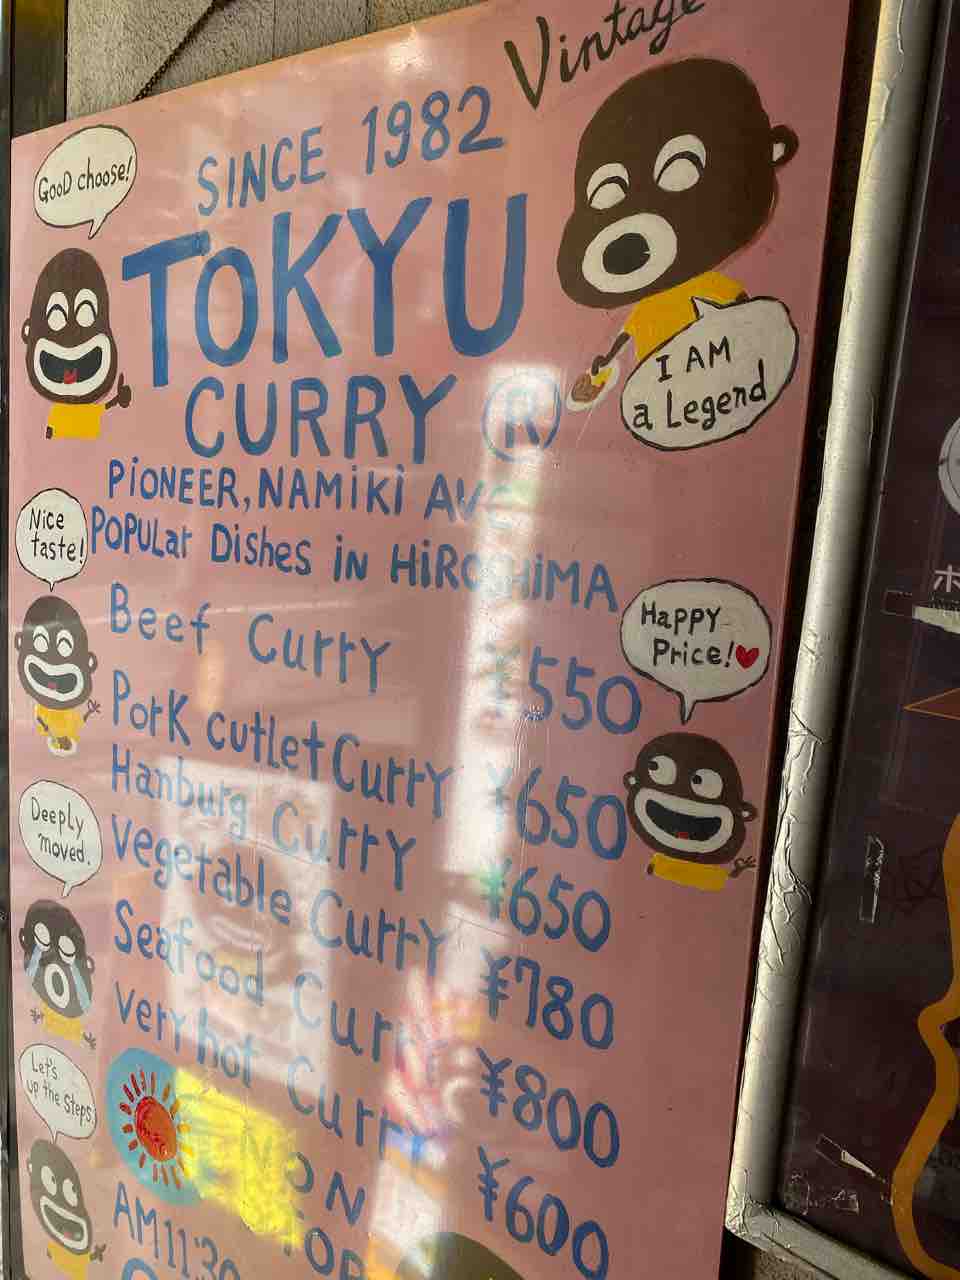 Vintage
SINCE 1982
GooD choose!
TOKYU
CURRY ®
I AM
a Legend
PiONEER, NAMiKi
Nice
taste!
POPULar Dishes iN HiROSHiMA
Beef Curry ¥550
Happy
Price!♥
Pork cutlet Curry ¥650
Hanburg Curry ¥650
Deeply
moved.
vegetable Curry ¥780
Seafood Curry ¥800
very hot Curry ¥600
Let's
up the Steps
AM11:30